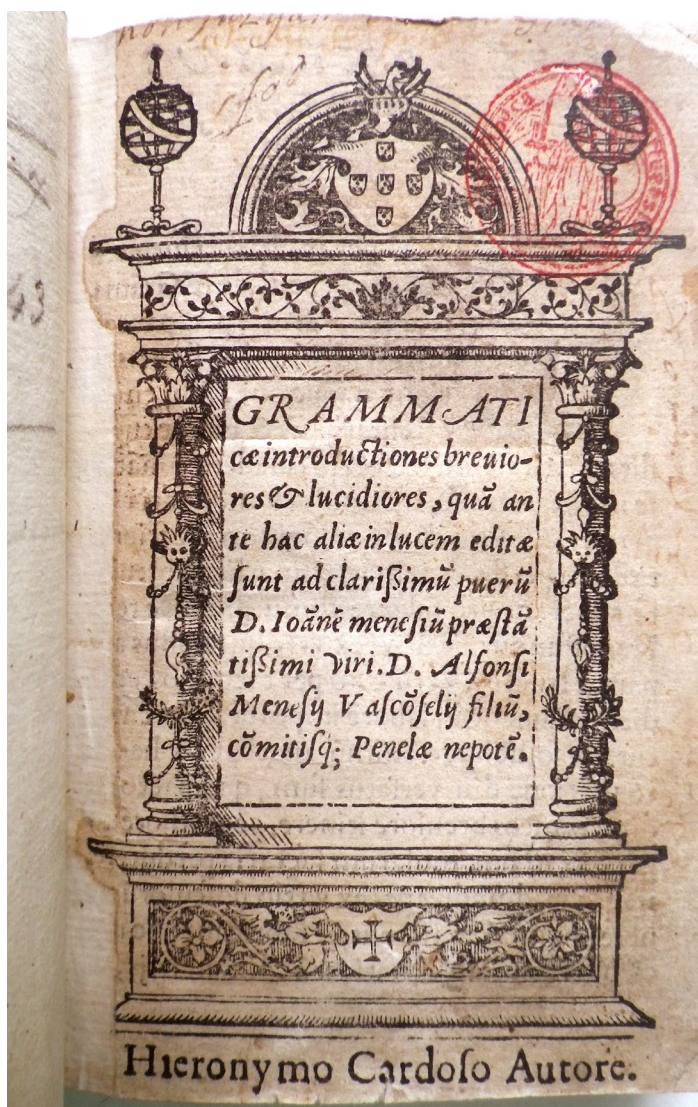 GRAMMATI
cæ introductiones breuio-
res & lucidiores, quã an
te hac aliæ in lucem editæ
ſunt ad clariſsimũ puerũ
D. Ioãnẽ meneſiũ præſtã
tiſsimi viri. D. Alfonſi
Meneſij Vaſcõſelij filiũ,
cõmitiſq; Penelæ nepotẽ.
Hieronymo Cardoſo Autore.